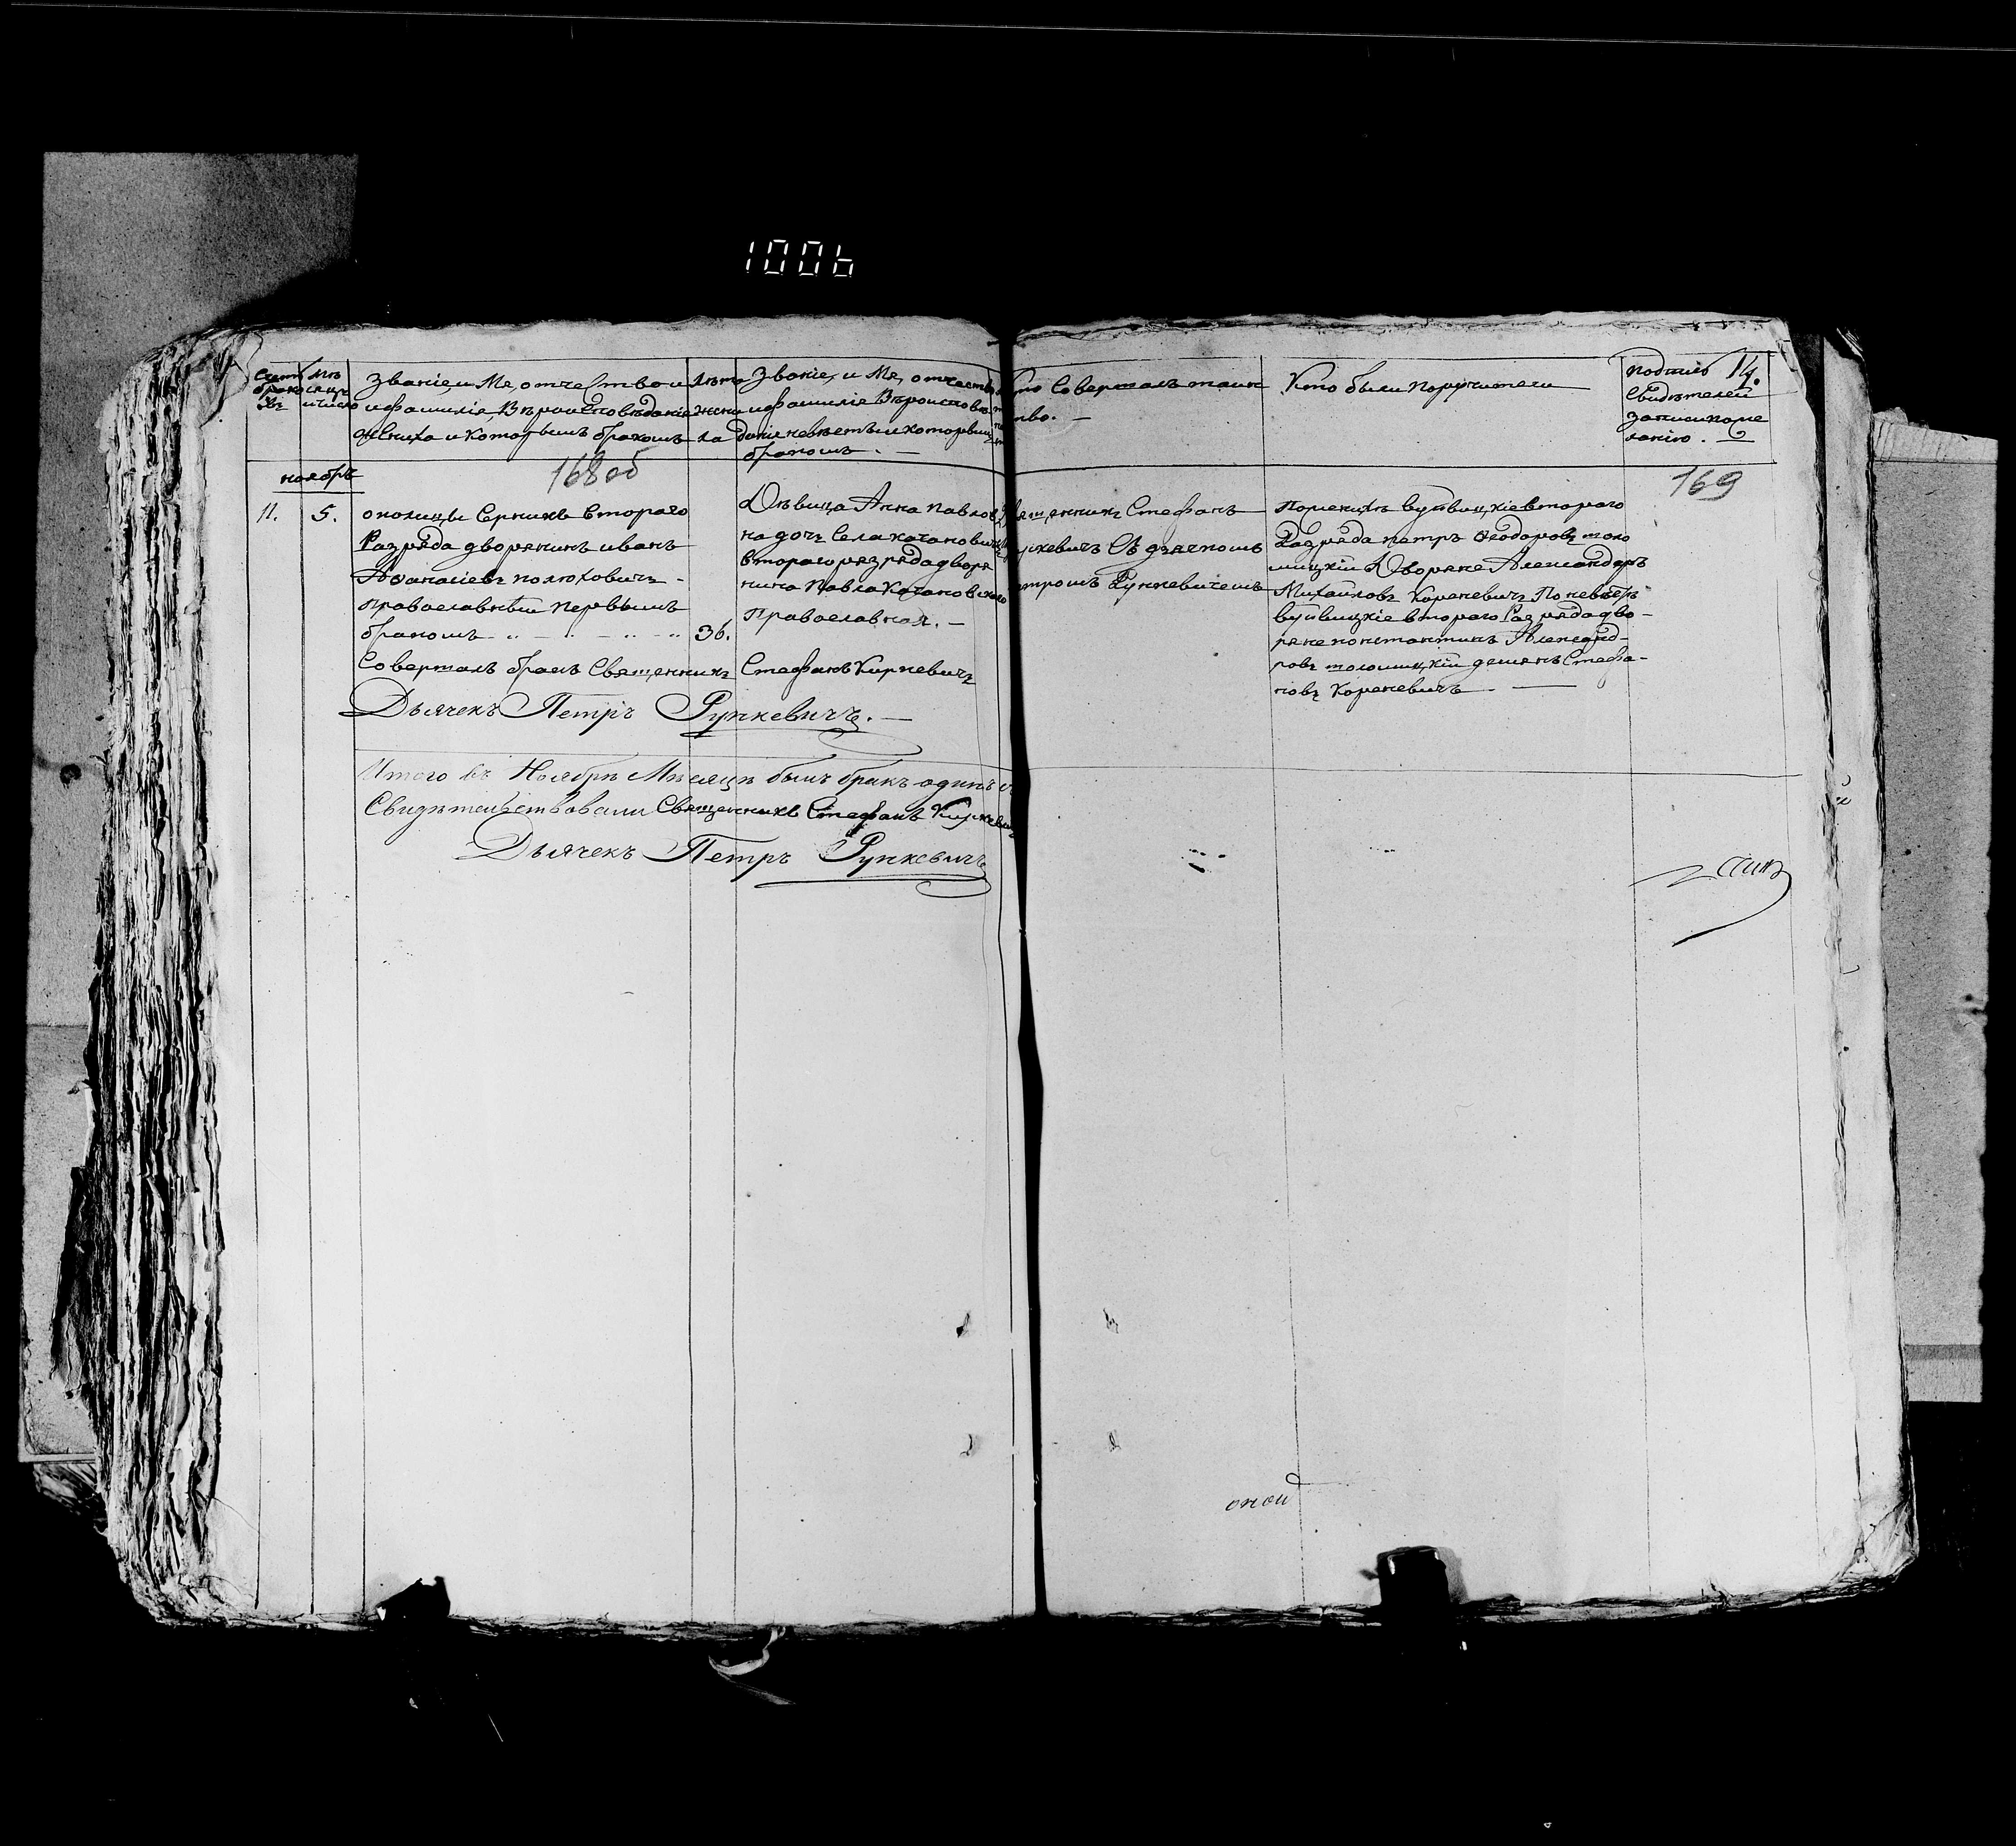 1006
Счетъ браковъ
Мѣсяцъ и число
Званіе, и Мя, отчество и
и фамилія, Вѣроисповѣданіе
жениха и которымъ бракомъ
Лѣта
жени
ха
Званіе, и Мя, отчество
и фамилія Вѣроисповѣ
данія невѣсты и которымъ
бракомъ. —
Кто Совершалъ таин
ство. —
Кто были поручители
подпись
Свидѣтелей
записи поже
ланію. —
14.
168 об
169
ноябрь
11. 5.
околицы Серникъ второго
Разряда дворянинъ иванъ
Аѳанасіевъ полюховичъ -
православный первымъ
бракомъ 36.
Дѣвица Анна павлов
на дочь Села качановичъ
второго разряда дворя
нина павла Качановского
Православная. —
Священникъ Стефанъ
Киркевичъ Съ дьячкомъ
петромъ Рункевичемъ
второго
Разряда петръ Ѳеодоровъ толо
мицкій Дворяне Александръ
Михайловъ Кореневичъ По невѣстѣ
вуйвицкіе второго Разряда дво-
ряне константинъ Александ-
ровъ толмицкій демянъ Стефа-
новъ Кореневичъ —
Совершалъ бракъ Священникъ Стефанъ Киркевичъ
Дьячекъ Петръ Рункевичъ. —
Итого въ Ноябрѣ Мѣсяцѣ былъ бракъ одинъ
Свидѣтельствовали Священникъ Стефанъ Киркевичъ
Дьячекъ Петръ Рункевичъ
оной